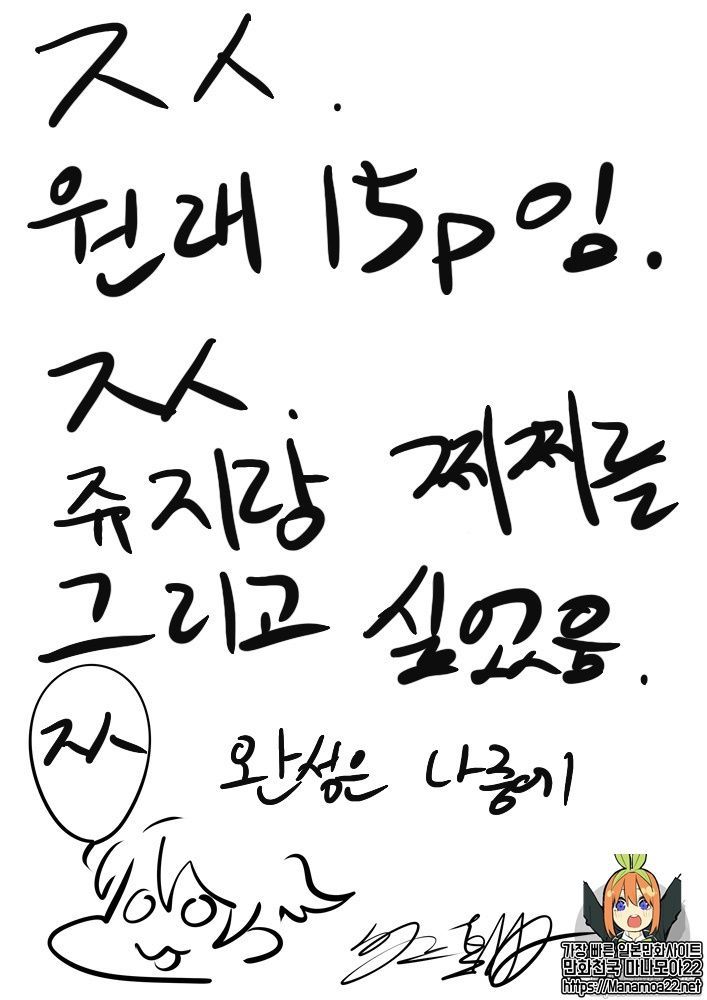 ㅈㅅ.
원래 15p임.
ㅈㅅ.
쥬지랑 찌찌를
그리고 싶었음.
ㅈㅅ
완성은 나중에
가장 빠른 일본만화사이트
만화천국 마나모아22
https://Manamoa22.net